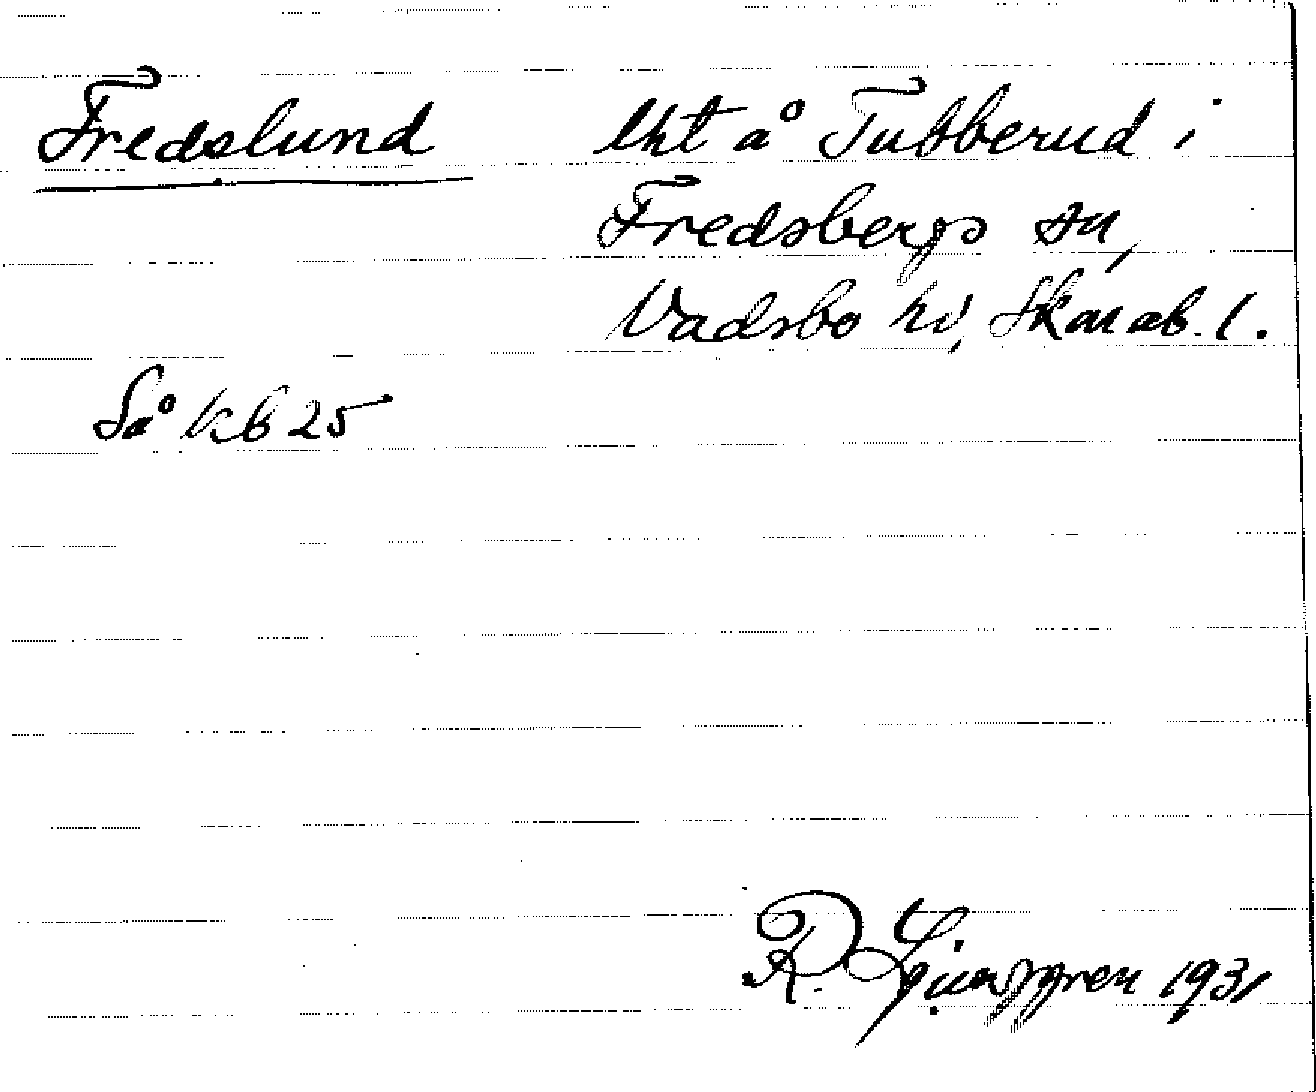 Fredslund lht å Tubberud i
Fredsbergs sn,
Vadsbo hd, Skarab. l.
Så kb 25
R. Ljunggren 1931